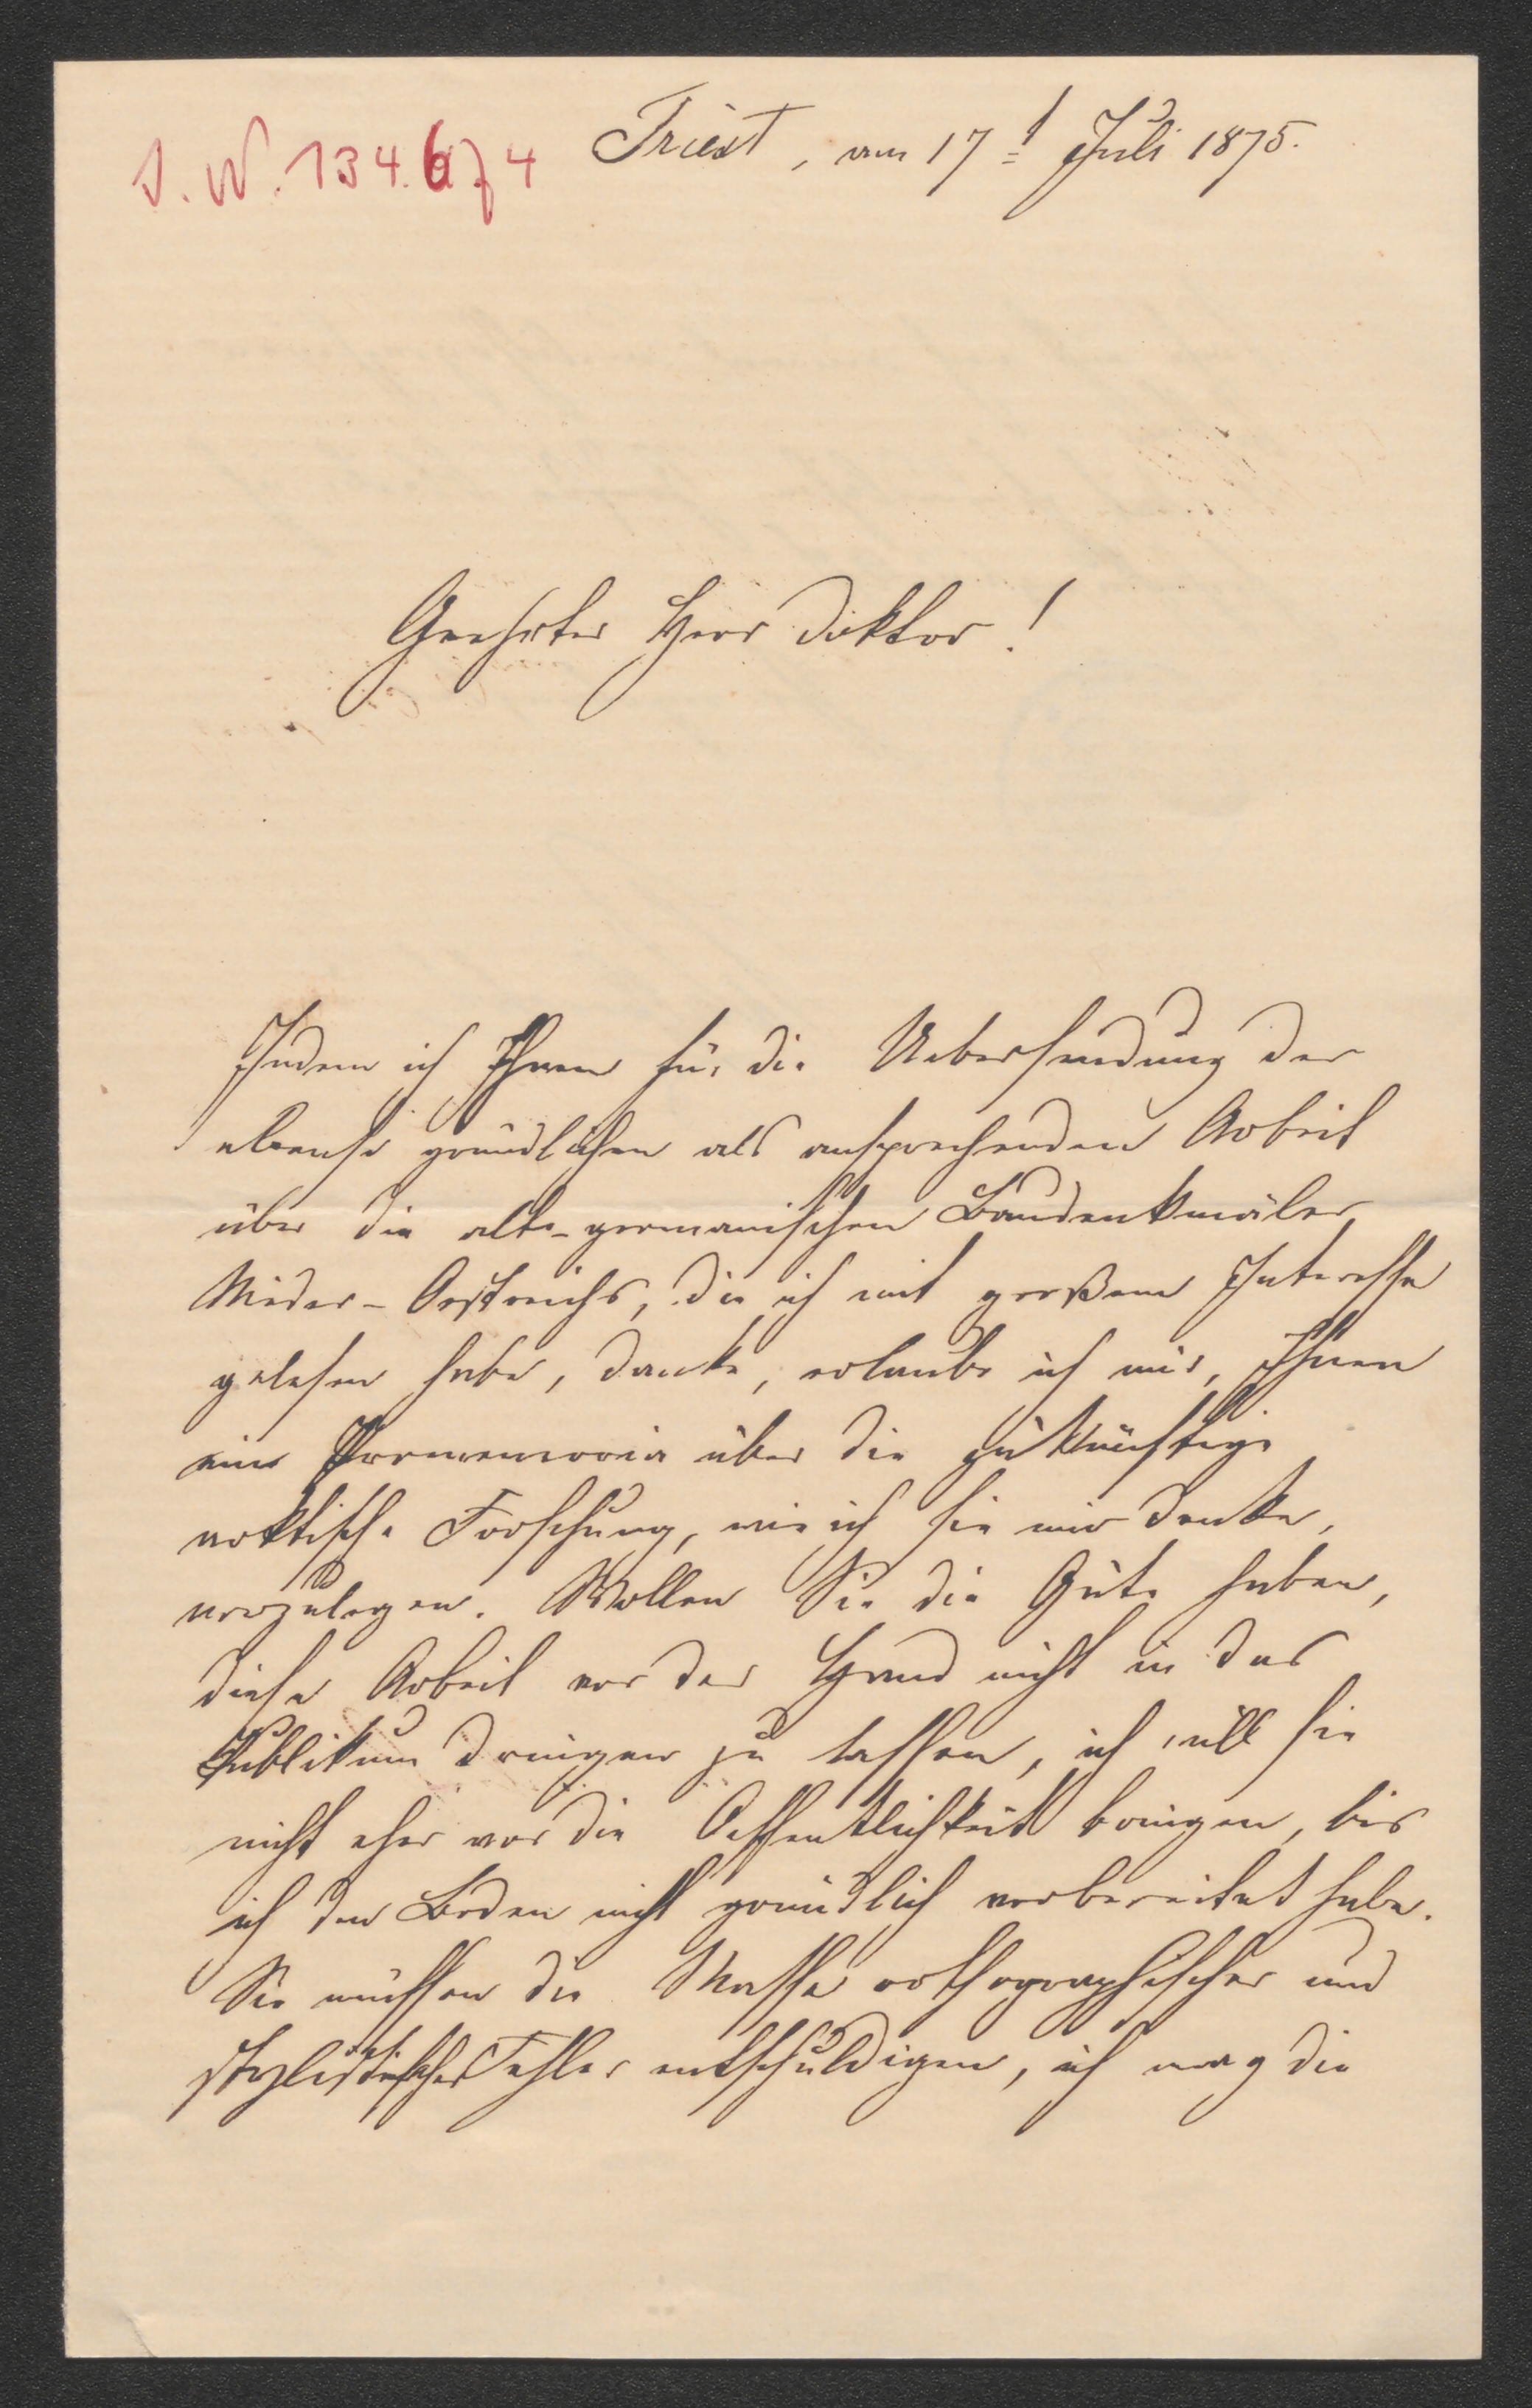 I. N. 134.674
Triest, am 17t Juli 1875.
Geehrter Herr Doktor!
Indem ich Ihnen für die Uebersendung der
ebenso gründlichen als ansprechenden Arbeit
über die alt-germanischen Baudenkmäler
Nieder-Oestreichs, die ich mit großem Interesse
gelesen habe, danke, erlaube ich mir, Ihnen
ein Promemoria über die zukünftige
arktische Forschung, wie ich sie mir denke,
vorzulegen. Wollen Sie die Güte haben,
diese Arbeit vor der Hand nicht in das
Publikum dringen zu lassen, ich will sie
nicht eher vor die Oeffentlichkeit bringen, bis
ich den Boden nicht gründlich vorbereitet habe.
Sie müssen die Masse orthographischer und
stylistischer Fehler entschuldigen, ich mag die